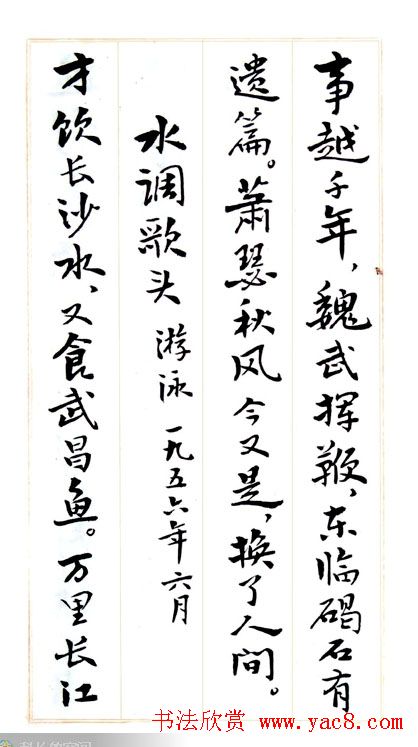 事越千年，魏武挥鞭，东临碣石有
遗篇。萧瑟秋风今又是，换了人间。
水调歌头 游泳 一九五六年六月
才饮长沙水，又食武昌鱼。万里长江
书法欣赏 www.yac8.com